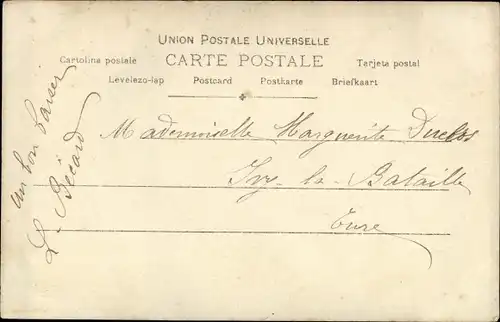 UNION POSTALE UNIVERSELLE
Cartolina postale CARTE POSTALE Tarjeta postal
Levelezo-lap Postcard Postkarte Briefkaart
Mademoiselle Marguerite Duclos
Ivry-la-Bataille
Eure
un bon baiser
L. Bécard